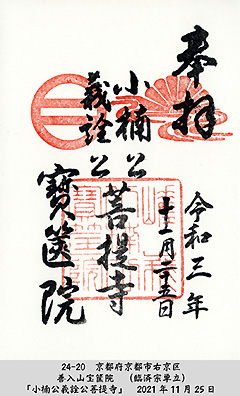 奉拝
小楠公
義詮公
菩提寺
寶篋院
令和三年
十一月二十五日
24-20 京都府京都市右京区
善入山宝筐院 (臨済宗単立)
「小楠公義詮公菩提寺」 2021年11月25日